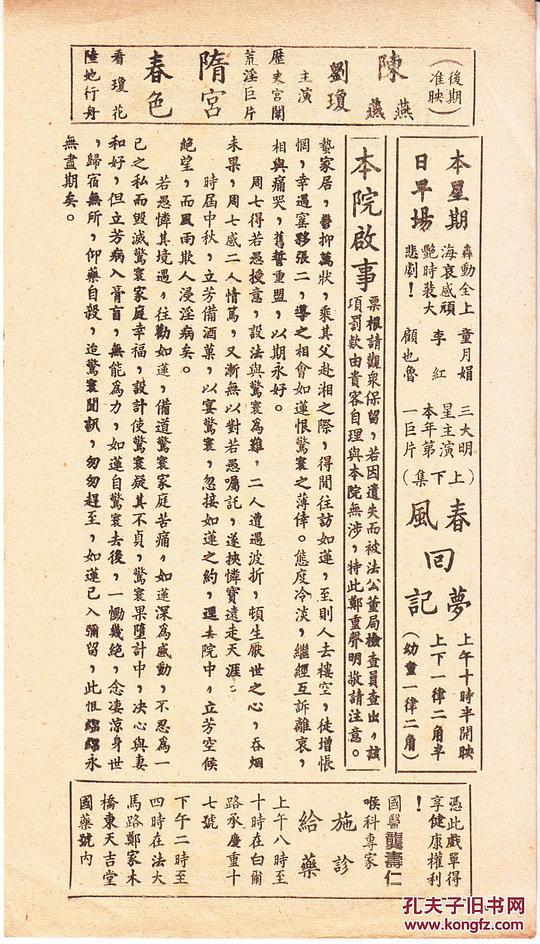 （後期准映）
陳燕燕
劉瓊
主演
歷史宮闈
荒淫巨片
隋宮
春色
看瓊花
陸地行舟
本星期
日早場
轟動全上
海哀感頑
艷時裝大
悲劇！
童月娟
李紅
顧也魯
三大明
星主演
本年第
一巨片
（上下集）
春風回夢記
上午十時半開映
上下一律二角半
（幼童一律二角）
本院啟事
票根請觀衆保留，若因遺失而被法公董局檢查員查出，該
項罰欵由貴客自理與本院無涉，特此鄭重聲明敬請注意。
蟄家居，鬱抑萬狀，乘其父赴湘之際，得間往訪如蓮，至則人去樓空，徒增悵
惘，幸遇窰夥張二，導之相會如蓮恨驚寰之薄倖。態度冷淡，繼經互訴離衷，
相與痛哭，舊誓重盟，以期永好。
周七得若愚授意，設法與驚寰為難，二人遭遇波折，頓生厭世之心，吞烟
未果，周七感二人情篤，又漸無以對若愚囑託，遂挾憐寶遠走天涯：
時屆中秋，立芳備酒菓，以宴驚寰，忽接如蓮之約，逕去院中，立芳空候
絕望，而風雨欺人浸淫病矣。
若愚憐其境遇，往勸如蓮，備道驚寰家庭苦痛，如蓮深為感動，不忍為一
己之私而毀滅驚寰家庭幸福，設計使驚寰疑其不貞，驚寰果墮計中，决心與妻
和好，但立芳病入膏肓，無能為力，如蓮自驚寰去後，一慟幾絕，念凄涼身世
，歸宿無所，仰藥自殺，迨驚寰聞訊，匆匆趕至，如蓮已入彌留，此恨綿綿永
無盡期矣。
憑此戲單得
享健康權利
！
國醫龔壽仁
喉科專家
施診
給藥
上午八時至
十時在白爾
路承慶里十
七號
下午二時至
四時在法大
馬路鄭家木
橋東天吉堂
國藥號內
孔夫子旧书网
www.kongfz.com